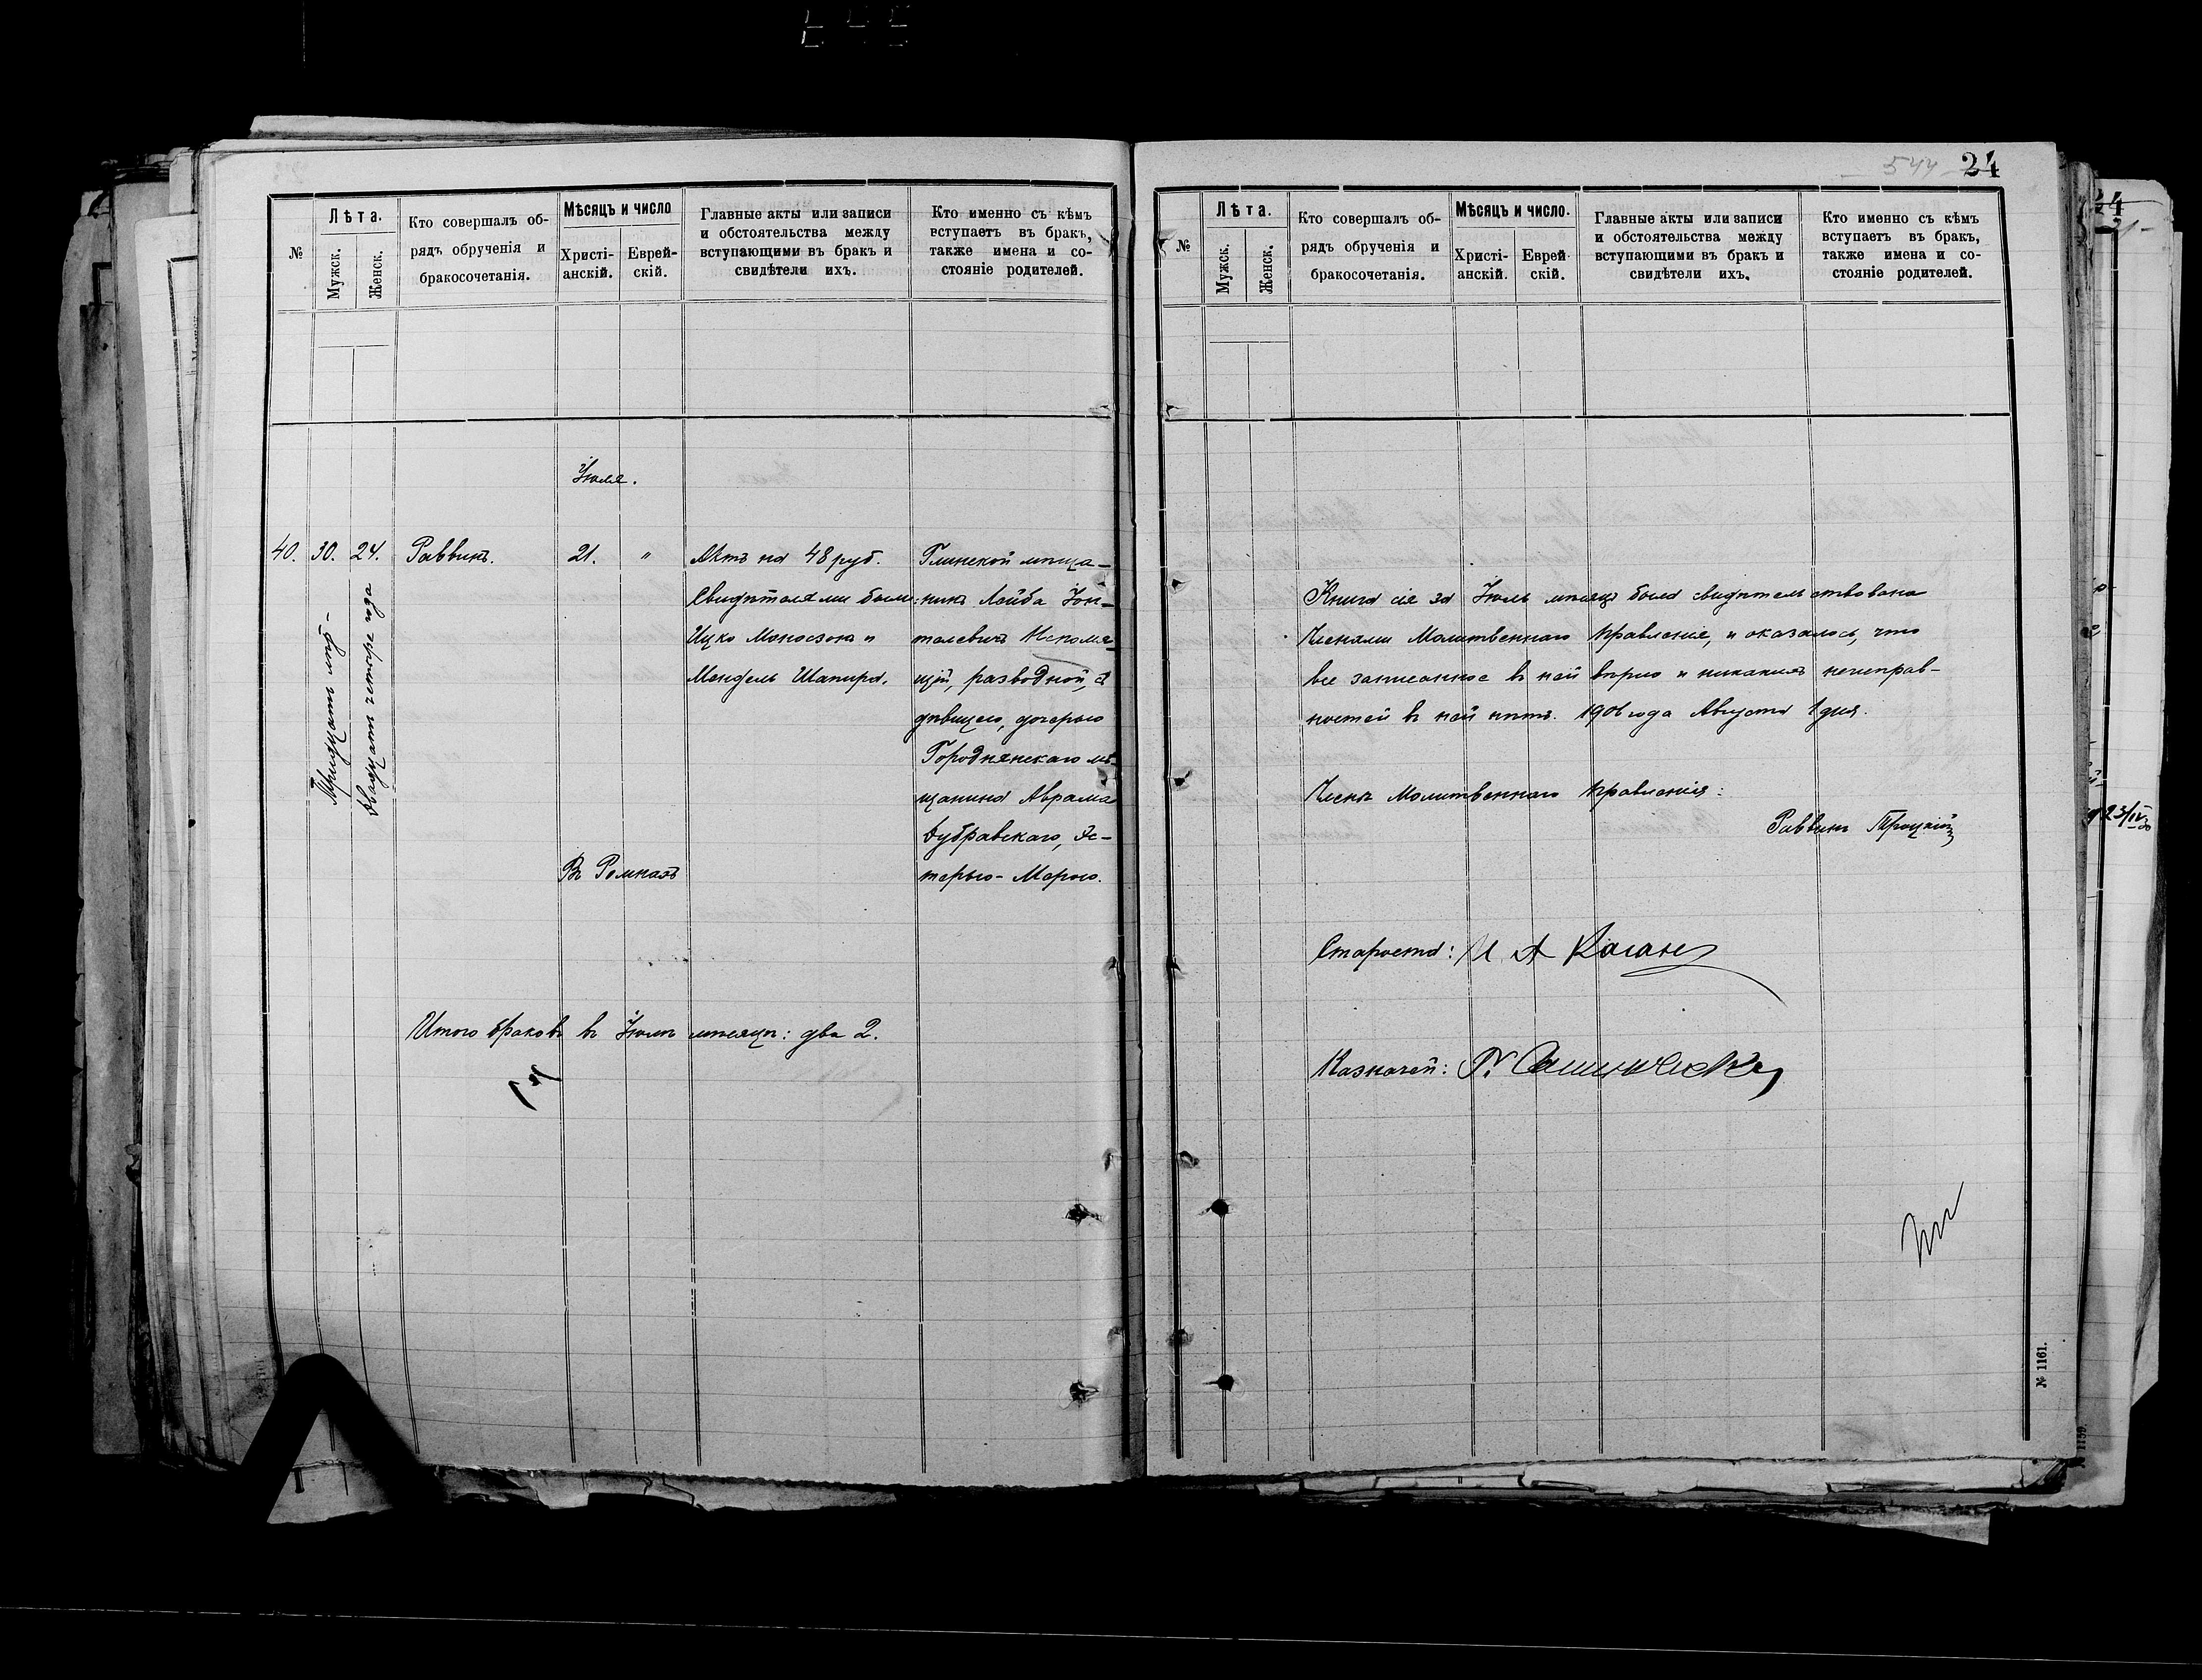 544 24
№
Лѣта.
Мужск.
Женск.
Кто совершалъ об-
рядъ обрученія и
бракосочетанія.
Мѣсяцъ и число
Христі-
анскій.
Еврей-
скій.
Главные акты или записи
и обстоятельства между
вступающими въ бракъ и
свидѣтели ихъ.
Кто именно съ кѣмъ
вступаетъ въ бракъ,
также имена и со-
стояніе родителей.
Іюля.
40. 30. 24. Раввинъ. 21. "
Тридцать лѣтъ
Двадцать четыре года
Актъ на 48 руб.
Свидѣтелями были:
Ицко Моносзонъ и
Мендель Шапиро.
Глинской мѣща-
нинъ Лейба Іон-
телевичъ Непомня-
щій, разводной, съ
дѣвицею, дочерью
Городнянскаго мѣ-
щанина Аврама
Дубравскаго, Эс-
терью-Мерою.
Въ Ромнахъ
Итого браковъ въ Іюлѣ мѣсяцѣ: два 2.
№
Лѣта.
Мужск.
Женск.
Кто совершалъ об-
рядъ обрученія и
бракосочетанія.
Мѣсяцъ и число.
Христі-
анскій.
Еврей-
скій.
Главные акты или записи
и обстоятельства между
вступающими въ бракъ и
свидѣтели ихъ.
Кто именно съ кѣмъ
вступаетъ въ бракъ,
также имена и со-
стояніе родителей.
Книга сія за Іюль мѣсяцъ была свидѣтельствована
Членами Молитвеннаго Правленія, и оказалось, что
все записанное въ ней вѣрно и никакихъ неисправ-
ностей въ ней нѣтъ. 1901 года Августа 1 дня.
Члены Молитвеннаго Правленія:
Раввинъ Троцкій
Староста: И А Каганъ
Казначей:
№ 1161.